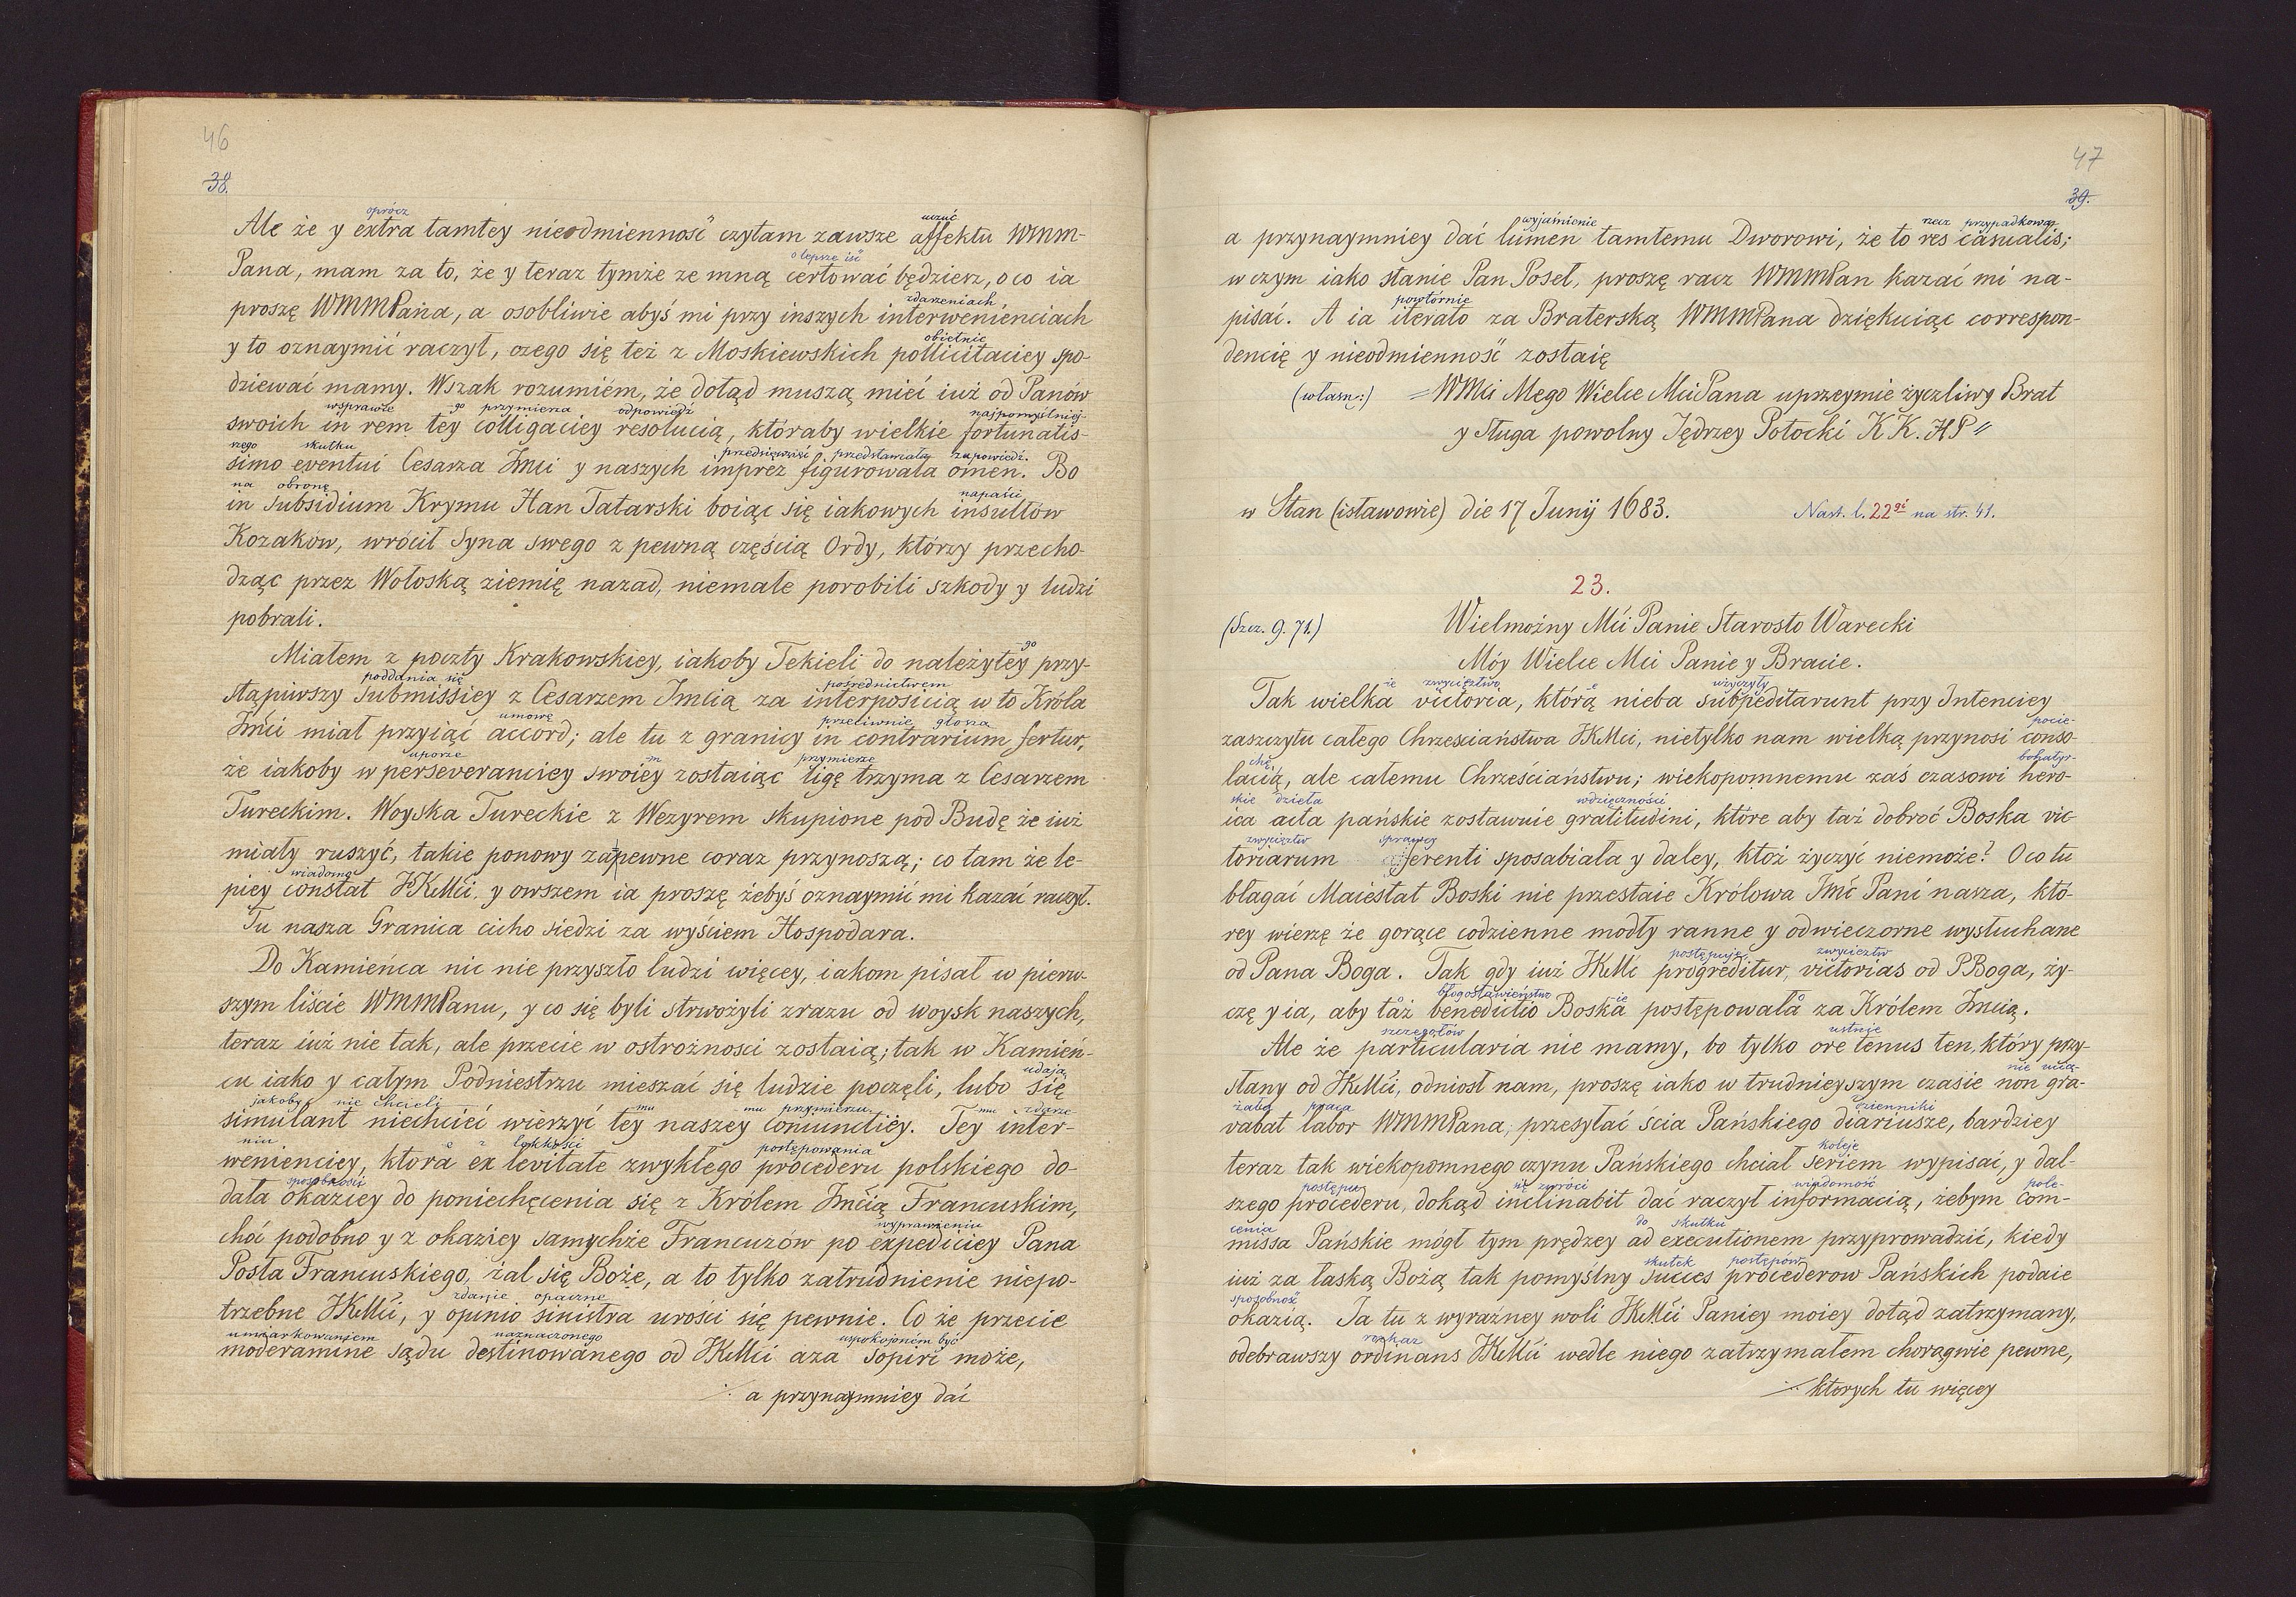 46
38.
oprócz uczuć
Ale że y extra tamtey nieodmienność czytam zawsze affektu WMM-
o lepsze iść
Pana, mam za to, że y teraz tymże ze mną certować będziesz, o co ia
zdarzeniach
proszę WMMPana, a osobliwie abyś mi przy inszych interwenienciach
obietnic
y to oznaymić raczył, czego się też z Moskiewskich pollicitaciey spo-
dziewać mamy. Wszak rozumiém, że dotąd muszą mieć iuż od Panów
wsprawie go przymierza odpowiedź najpomyślniej-
swoich in rem tey colligaciey resolucią, któraby wielkie fortunatis-
szego skutku przedsięwzięć przedstawiała zapowiedź.
simo eventui Cesarza Jmci y naszych imprez figurowała omen. Bo
na obronę napaści
in subsidium Krymu Han Tatarski boiąc się iakowych insultów
Kozakow, wrócił Syna swego z pewną częścią Ordy, którzy przecho-
dząc przez Wołoską ziemię nazad, niemałe porobili szkody y ludzi
pobrali.
go
Miałem z poczty Krakowskiey, iakoby Tekieli do należytey przy-
poddania się pośrednictwem
stąpiwszy submissiey z Cesarzem Jmcią za interposicią w to Króla
umowę przeciwnie głoszą
Jmći miał przyiąć accord; ale tu z granicy in contrarium fertur,
uporze m przymierze
że iakoby w perseveranciey swoiey zostaiąc ligę trzyma z Cesarzem
Tureckim. Woyska Tureckie z Wezyrem skupione pod Budę że iuż
miały ruszyć, takie ponowy zapewne coraz przynoszą; co tam że le-
wiadomo
piey constat JKMći, y owszem ia proszę żebyś oznaymić mi kazać raczył.
Tu nasza Granica cicho siedzi za wyściem Hospodara.
Do Kamieńca nic nie przyszło ludzi więcey, iakom pisał w pierw-
szym liście WMMPanu, y co się byli strwożyli zrazu od woysk naszych,
teraz iuż nie tak, ale przecie w ostrożnosci zostaią; tak w Kamień-
udają
cu iako y całym Podniestrzu mieszać się ludzie poczęli, lubo się
jakoby nie chcieli mu mu przymierzu mu zdarze-
simulant niechcieć wierzyć tey naszey coniunctiey. Tey inter-
niu e z lekkości postępowania
wenienciey, która ex levitate zwykłego procederu polskiego do-
sposobności
dała okaziey do poniechęcenia się z Królem Jmčią Francuskim,
wyprawieniu
choć podobno y z okaziey samychże Francuzów po expediciey Pana
Posła Francuskiego, żal się Boże, a to tylko zatrudnienie niepo-
zdanie opaczne
trzebne JKMći, y opinio sinistra urości się pewnie. Co że przecie
umiarkowaniem naznaczonego uspokojoném być
moderamine sądu destinowánego od JKMći aza sopiri może,
·/· a przynaymniey dać
47
39.
wyjaśnienie rzecz przypadkowa
a przynaymniey dać lumen tamtemu Dworowi, że to res casualis;
w czym iako stanie Pan Poseł, proszę racz WMMPan kazać mi na-
powtórnie
pisać. A ia iterato za Braterską WMMPana dziękuiąc correspon-
dencię y nieodmienność zostaię
(własn:) =WMci Mego Wielce MciPana uprzeymie życzliwy Brat
y Sługa powolny Jędrzey Potocki K K. HP"
w Stan (isławowie) die 17 Junij 1683. Nast. l. 22gi na str. 41.
23.
(Szcz. 9. 71.) Wielmożny Mći Panie Starosto Warecki
Móy Wielce Mci Panie y Bracie.
ie zwycięztwo e użyczyły
Tak wielka victoria, którą nieba suppeditarunt przy Intenciey
pocie-
zaszczytu całego Chrześciaństwa JKMci, nietylko nam wielką przynosi conso-
chę bohatyr-
lacią, ale całemu Chrześciaństwu; wiekopomnemu zaś czasowi hero-
skie dzieła wdzięczności
ica acta pańskie zostawuie gratitudini, które aby taż dobroć Boska vic-
zwycięztw sprawcy
toriarum gerenti sposabiała y daley, któż życzyć niemoże? O co tu
błagać Maiestat Boski nie przestaie Królowa Jmć Pani nasza, któ-
rey wierzę że gorące codzienne modły ranne y odwieczorne wysłuchane
postępuje zwycięztw
od Pana Boga. Tak gdy iuż JKMć progreditur, victorias od P.Boga, ży-
błogosławieństwo ie
czę y ia, aby taż benedictio Boska postępowała za Królem Jmcią.
szczegółów ustnie
Ale że particularia nie mamy, bo tylko ore tenus ten, który przy-
nie ucią-
słany od JKMći, odniosł nam, proszę iako w trudnieyszym czasie non gra-
żała praca dzienniki
vabat labor WMMPana, przesyłać ścia Pańskiego diariusze, bardziey
koleje
teraz tak wiekopomnego czynu Pańskiego chciał seriem wypisać, y dal-
postępu się zwróci wiadomość pole-
szego procederu, dokąd inclinabit dać raczył informacią, żebym com-
cenia do skutku
missa Pańskie mógł tym prędzey ad executionem przyprowadzić, kiedy
skutek postępów
iuż za łaską Bożą tak pomyślny succes procederow Pańskich podaie
sposobność
okazią. Ja tu z wyraźney woli JKMći Paniey moiey dotąd zatrzymany,
rozkaz
odebrawszy ordinans JKMći wedle niego zatrzymałem chorągwie pewne,
·/· ktorych tu więcey